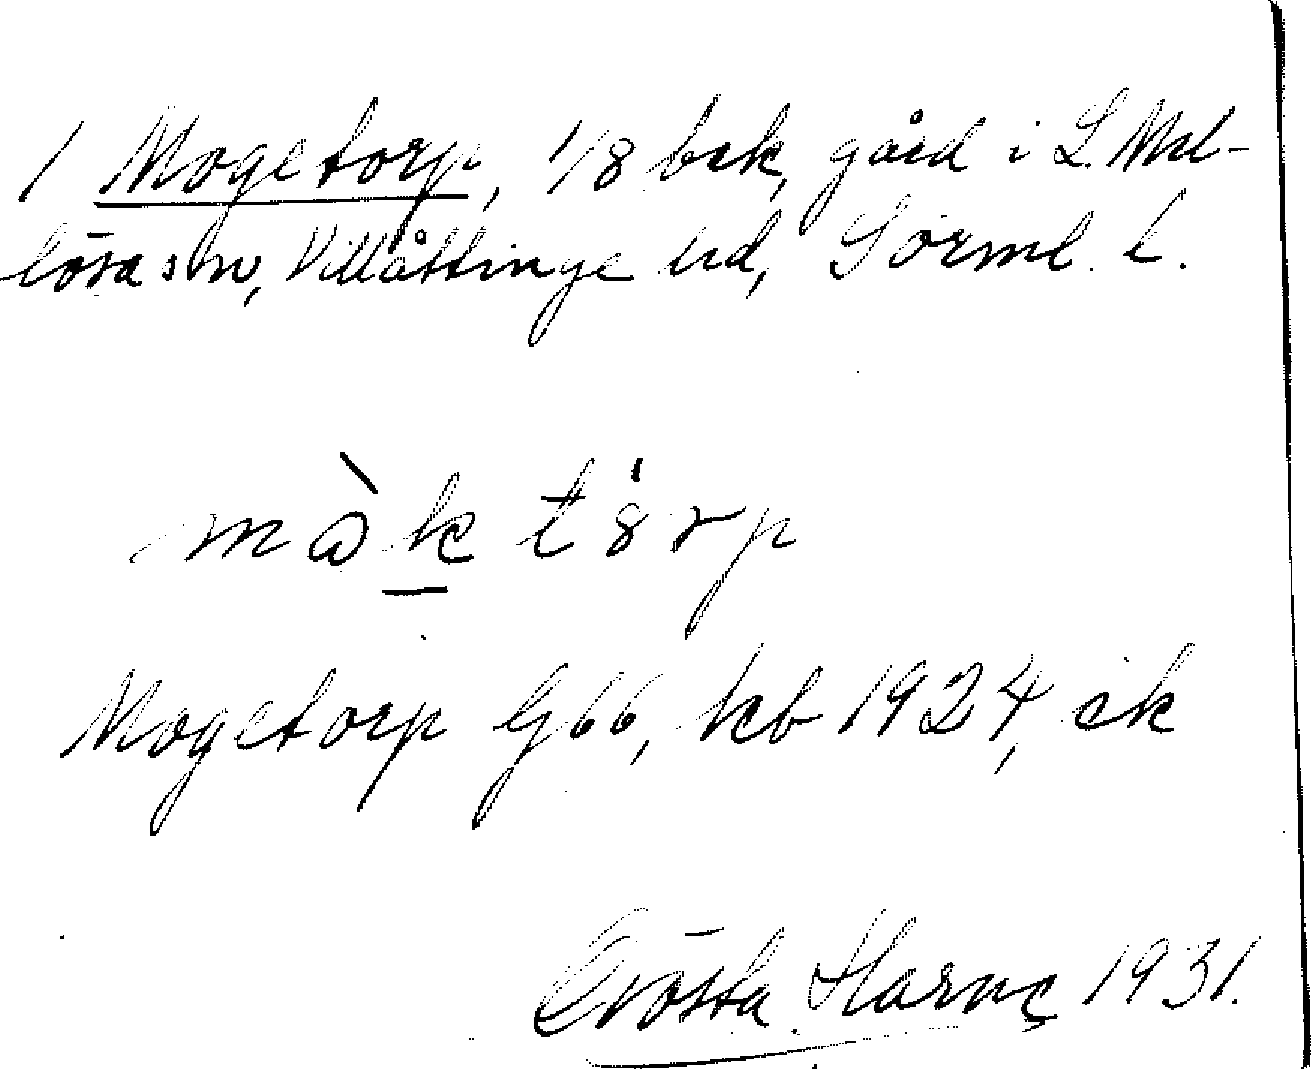 1 Mogetorp, 1/8 bsk, gård i L. Mel-
lösa sn, Villåttinge hd, Sörml. l.
Mogetorp G 66, kb 1924, ek
Gösta Harnç 1931.